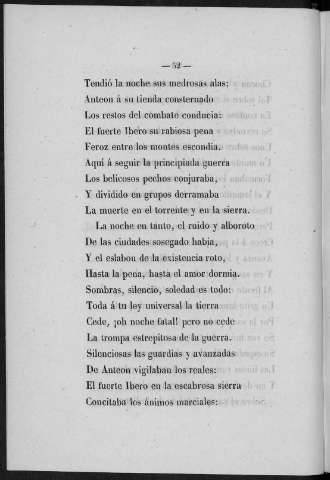 — 52 —
Tendió la noche sus medrosas alas:
Anteon á su tienda consternado
Los restos del combate conducia:
El fuerte Ibero su rabiosa pena
Feroz entre los montes escondia.
Aquí á seguir la principiada guerra
Los belicosos pechos conjuraba,
Y dividido en grupos derramaba
La muerte en el torrente y en la sierra.
La noche en tanto, el ruido y alboroto
De las ciudades sosegado habia,
Y el eslabon de la existencia roto,
Hasta la pena, hasta el amor dormia.
Sombras, silencio, soledad es todo:
Toda á tu ley universal la tierra
Cede, ¡oh noche fatal! pero no cede
La trompa estrepitosa de la guerra.
Silenciosas las guardias y avanzadas
De Anteon vigilaban los reales:
El fuerte Ibero en la escabrosa sierra
Concitaba los ánimos marciales: